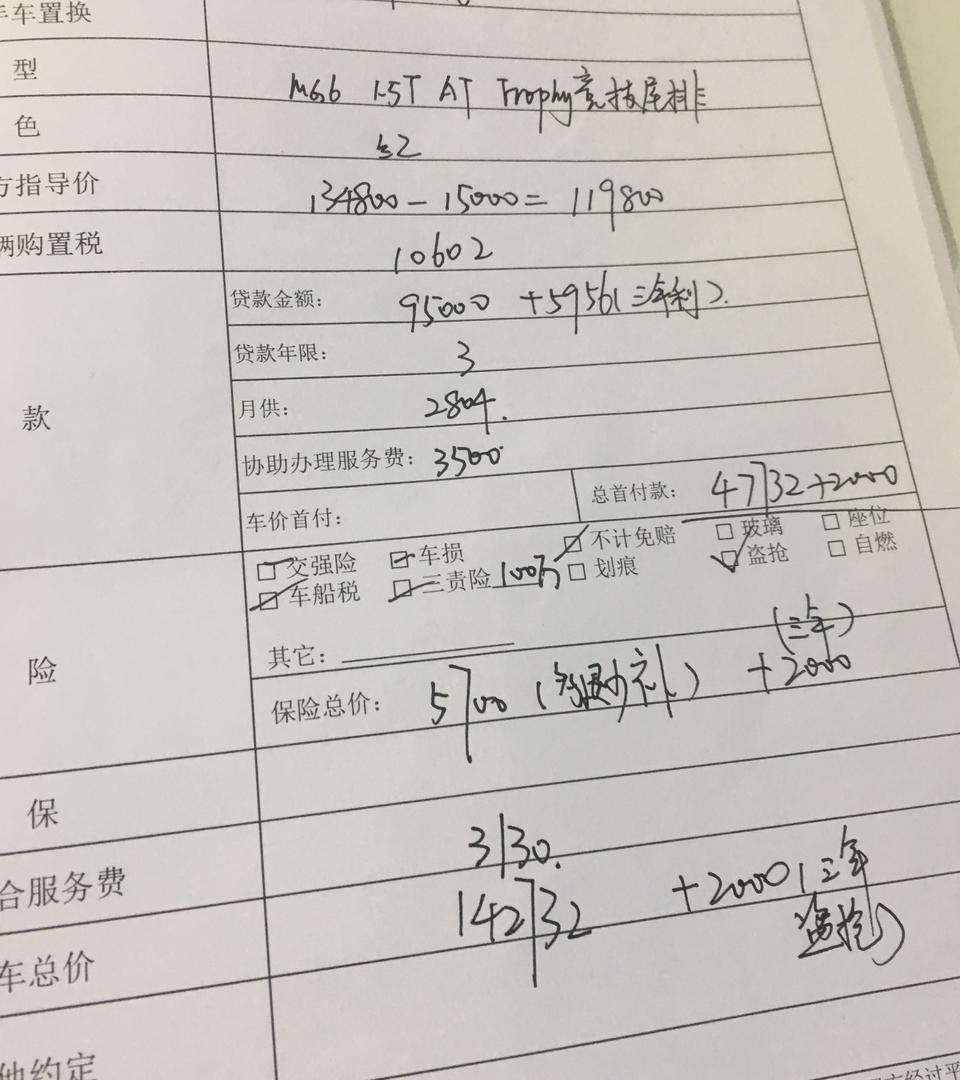 车置换
型 MG6 1.5T AT Trophy竞技尾排
色 红
方指导价 134800-15000=119800
购置税 10602
贷款金额: 95000 +5956(三年利).
贷款年限: 3
月供: 2804.
款
协助办理服务费: 3500
车价首付: 总首付款: 47732+2000
交强险 车损 不计免赔 玻璃 座位
车船税 三责险 100万 划痕 盗抢 自燃
其它:
(三年)
险
保险总价: 5700 ( +2000
保
合服务费 3130.
车总价 142732 +2000(三年
盗抢)
他约定
经过平